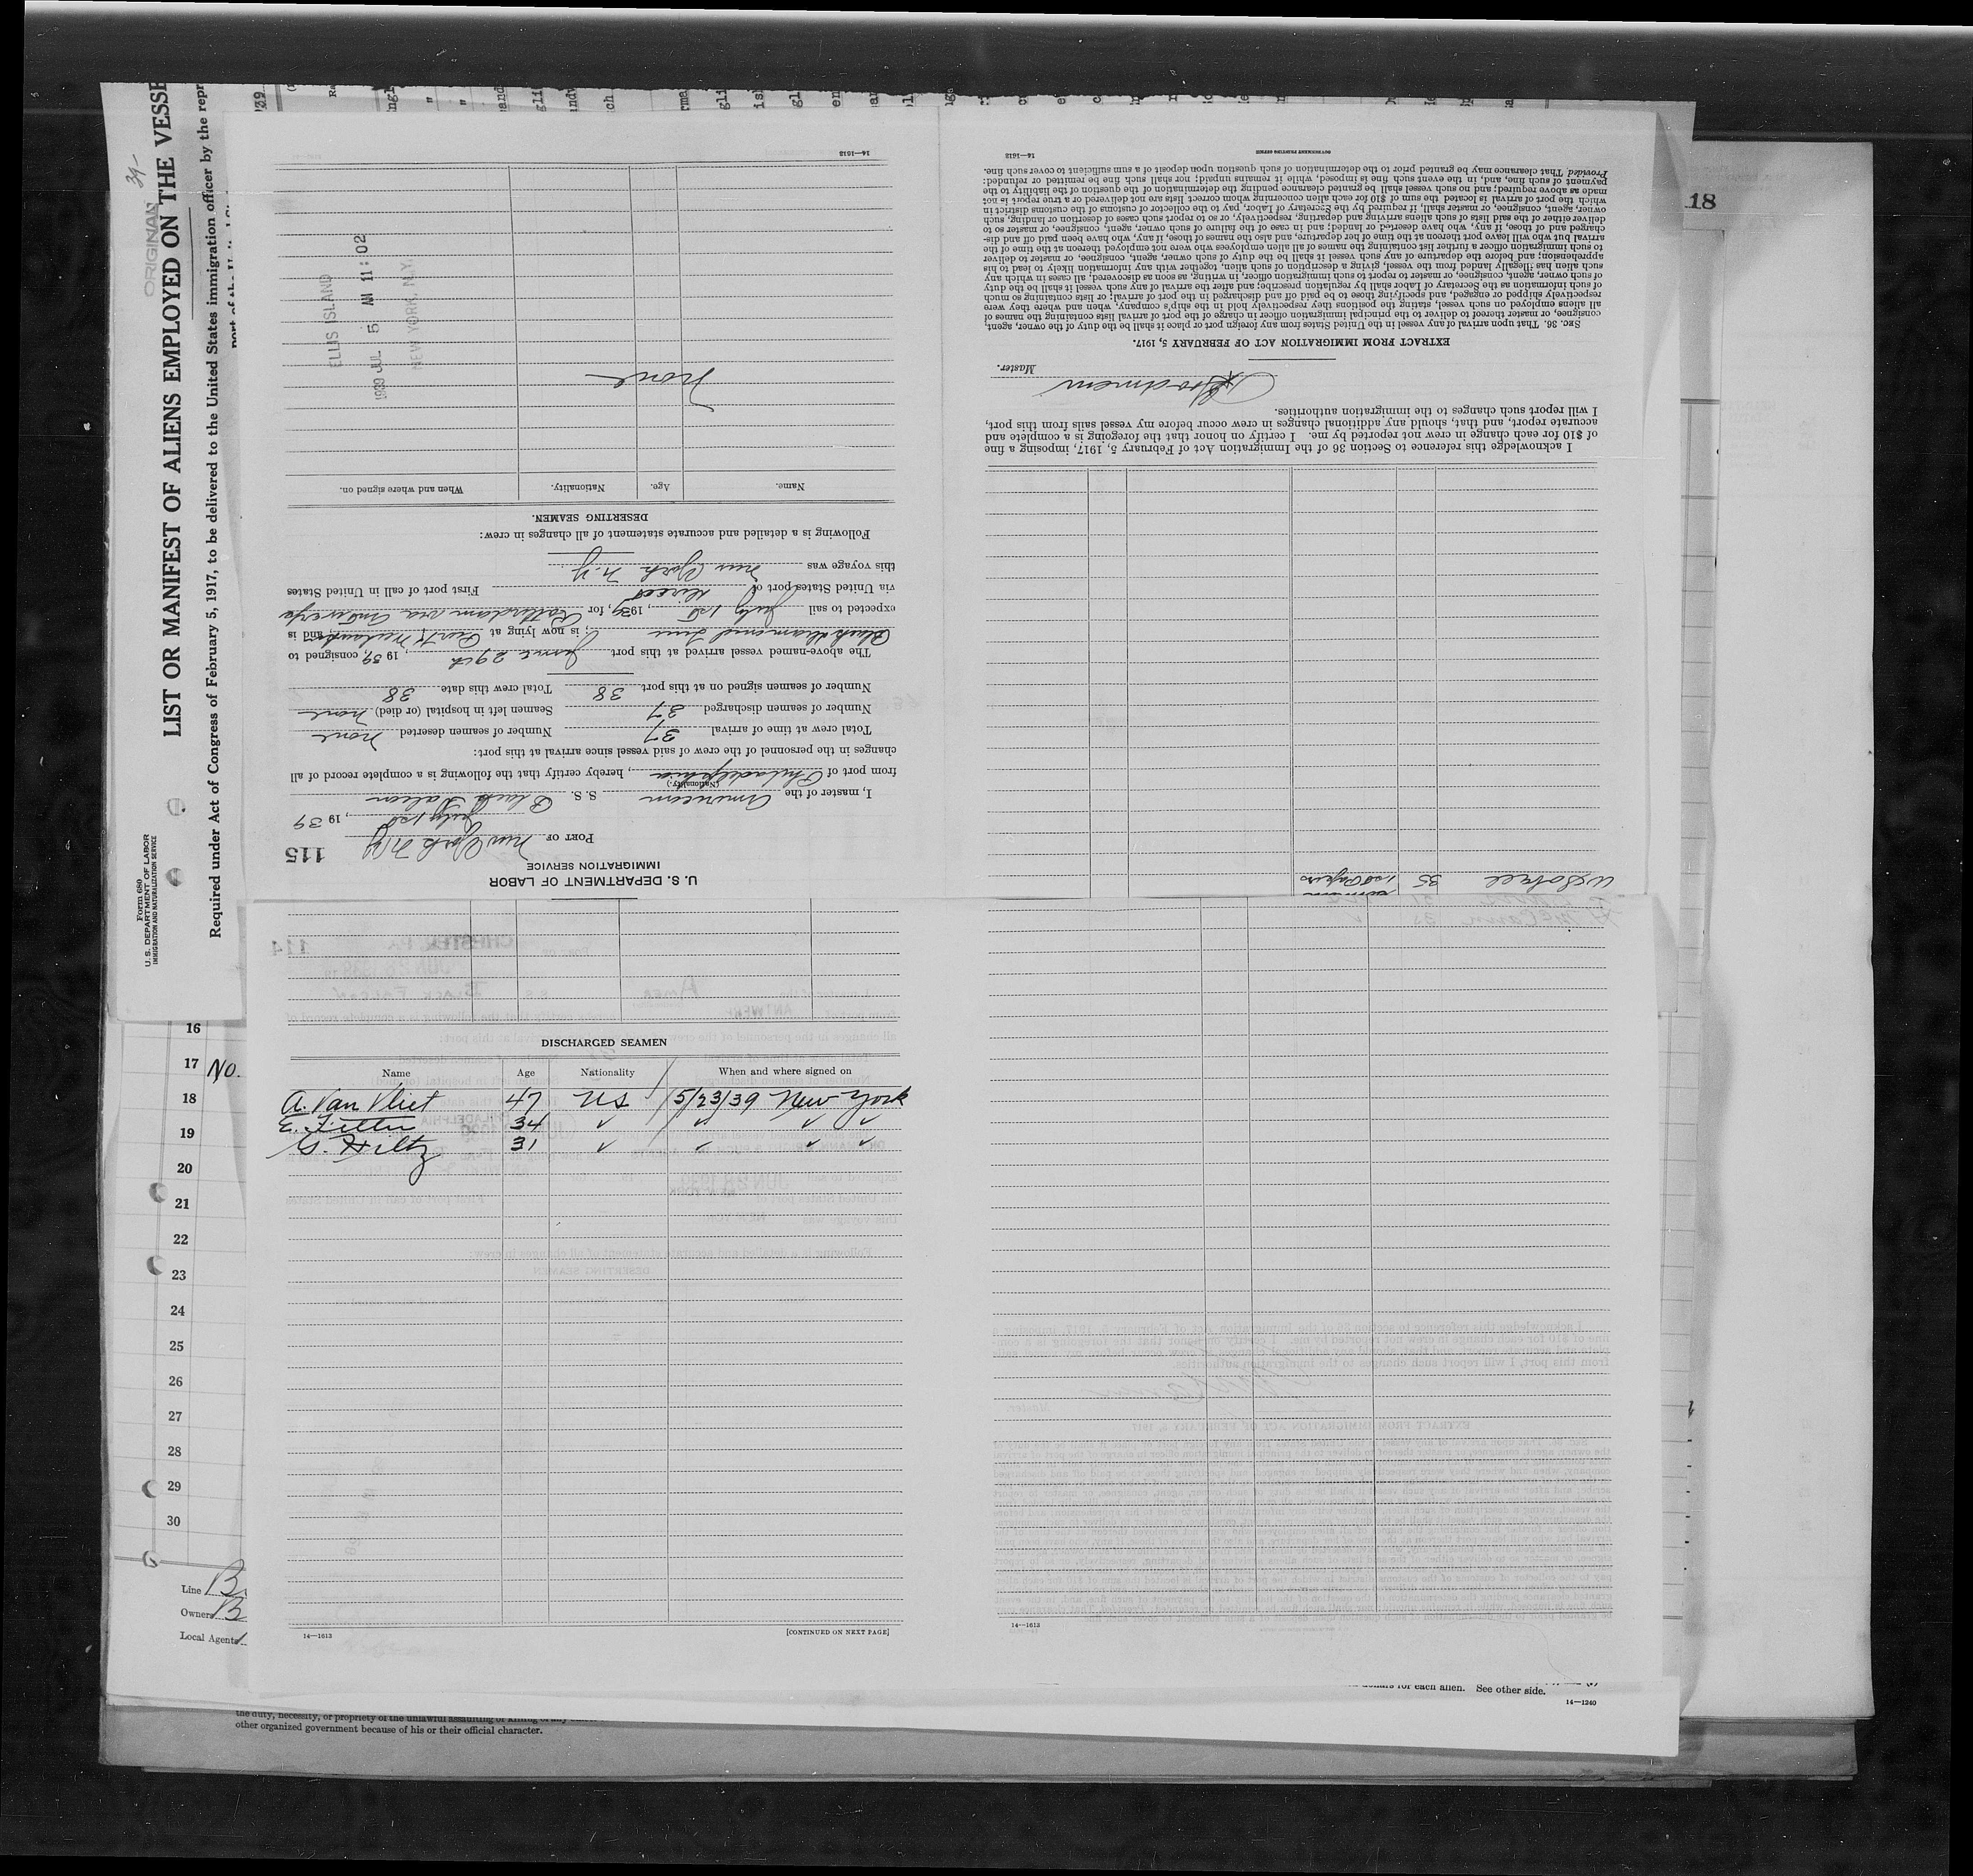 ORIGINAL
39-
Form 680
U. S. DEPARTMENT OF LABOR
IMMIGRATION AND NATURALIZATION SERVICE
LIST OR MANIFEST OF ALIENS EMPLOYED ON THE VESSE
Required under Act of Congress of February 5, 1917, to be delivered to the United States immigration officer by the repr
U. S. DEPARTMENT OF LABOR
IMMIGRATION SERVICE
115
PORT OF New York N.Y.
July 1st, 1939
I, master of the American S. S. Black Falcon
(Nationality.)
from port of Philadelphia, hereby certify that the following is a complete record of all
changes in the personnel of the crew of said vessel since arrival at this port:
Total crew at time of arrival 37 Number of seamen deserted none
Number of seamen discharged 37 Seamen left in hospital (or died) none
Number of seamen signed on at this port 38 Total crew this date 38
The above-named vessel arrived at this port June 29th, 1939, consigned to
Black Diamond Line; is now lying at and is
expected to sail July 1st, 1939, for Rotterdam via Antwerp
via United States port of direct First port of call in United States
this voyage was New York N.Y.
Following is a detailed and accurate statement of all changes in crew:
DESERTING SEAMEN.
Name. Age. Nationality. When and where signed on.
None
ELLIS ISLAND
1939 JUL 5 AM 11:02
NEW YORK, N.Y.
14—1613
35 1st Papers
I acknowledge this reference to Section 36 of the Immigration Act of February 5, 1917, imposing a fine
of $10 for each change in crew not reported by me. I certify on honor that the foregoing is a complete and
accurate report, and that, should any additional changes in crew occur before my vessel sails from this port,
I will report such changes to the immigration authorities.
Master.
EXTRACT FROM IMMIGRATION ACT OF FEBRUARY 5, 1917.
SEC. 36. That upon arrival of any vessel in the United States from any foreign port or place it shall be the duty of the owner, agent,
consignee, or master thereof to deliver to the principal immigration officer in charge of the port of arrival lists containing the names of
all aliens employed on such vessel, stating the positions they respectively hold in the ship's company, when and where they were
respectively shipped or engaged, and specifying those to be paid off and discharged in the port of arrival; or lists containing so much
of such information as the Secretary of Labor shall by regulation prescribe; and after the arrival of any such vessel it shall be the duty
of such owner, agent, consignee, or master to report to such immigration officer, in writing, as soon as discovered, all cases in which any
such alien has illegally landed from the vessel, giving a description of such alien, together with any information likely to lead to his
apprehension; and before the departure of any such vessel it shall be the duty of such owner, agent, consignee, or master to deliver
to such immigration officer a further list containing the names of all alien employees who were not employed thereon at the time of the
arrival but who will leave port thereon at the time of her departure, and also the names of those, if any, who have been paid off and dis-
charged and of those, if any, who have deserted or landed; and in case of the failure of such owner, agent, consignee, or master so to
deliver either of the said lists of such aliens arriving and departing, respectively, or so to report such cases of desertion or landing, such
owner, agent, consignee, or master shall, if required by the Secretary of Labor, pay to the collector of customs of the customs district in
which the port of arrival is located the sum of $10 for each alien concerning whom correct lists are not delivered or a true report is not
made as above required; and no such vessel shall be granted clearance pending the determination of the question of the liability to the
payment of such fine, and, in the event such fine is imposed, while it remains unpaid; nor shall such fine be remitted or refunded:
Provided That clearance may be granted prior to the determination of such question upon deposit of a sum sufficient to cover such fine.
14—1613
GOVERNMENT PRINTING OFFICE
18
DISCHARGED SEAMEN
Name Age Nationality When and where signed on
A. Van Vliet 47 US 5/23/39 New York
34 " " " "
G. Hiltz 31 " " " "
14—1613
[CONTINUED ON NEXT PAGE]
14—1613
16
17 No.
18
19
20
21
22
23
24
25
26
27
28
29
30
Line B
Owners B
Local Agents
dollars for each alien. See other side.
14—1240
the duty, necessity, or propriety of the unlawful assaulting or killing of any
other organized government because of his or their official character.